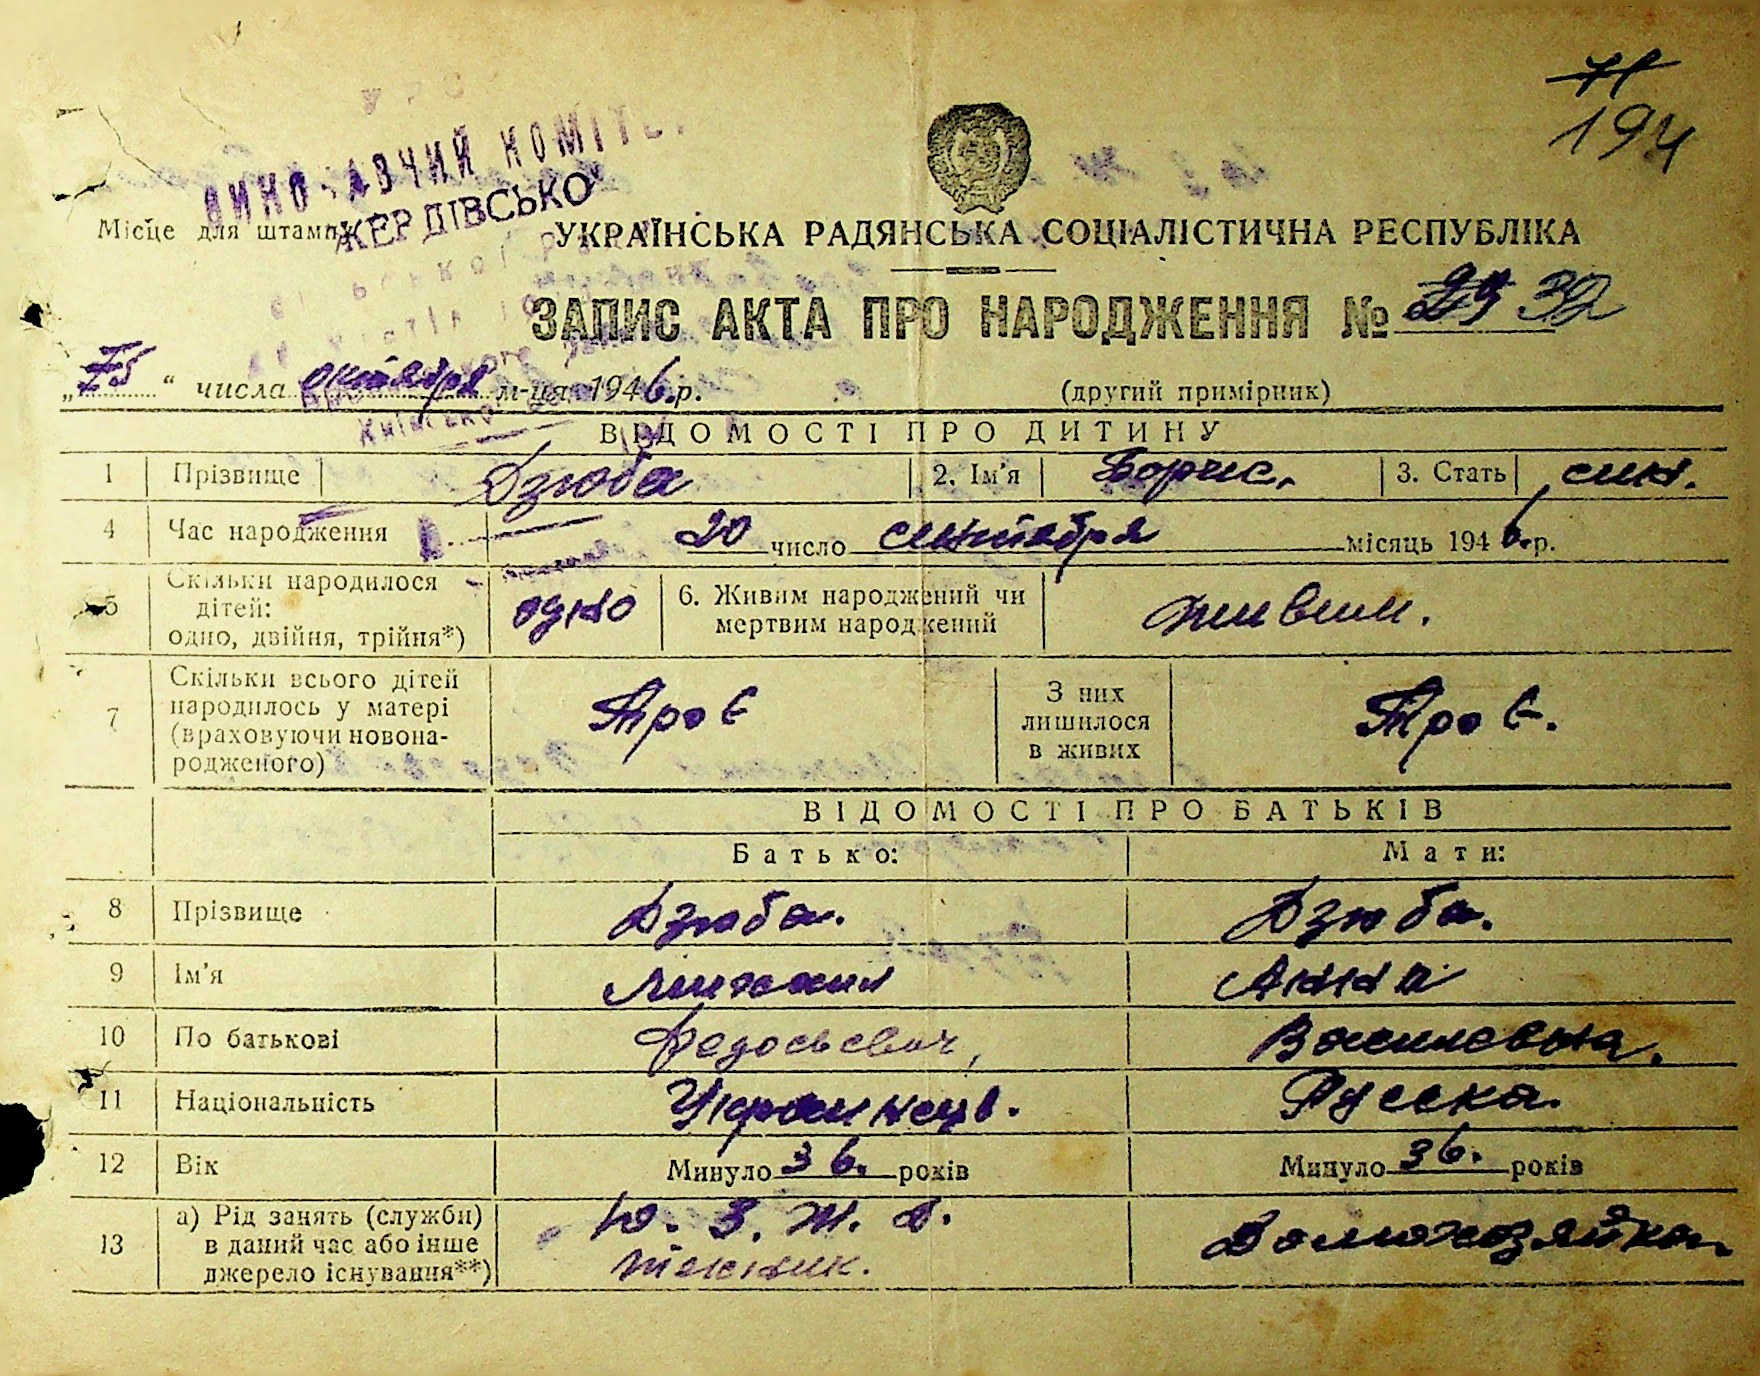 194
ВИКО АВЧИЙ КОМІТЕ
ЖЕРДІВСЬКО
Місце для штампу
УКРАЇНСЬКА РАДЯНСЬКА СОЦІАЛІСТИЧНА РЕСПУБЛІКА
ЗАПИС АКТА ПРО НАРОДЖЕННЯ № 32
„ “ числа октября м-ця 1946.р. (другий примірник)
ВІДОМОСТІ ПРО ДИТИНУ
1 Прізвище Дзюба 2. Ім'я Борис. 3. Стать син.
4 Час народження 20 число сентября місяць 1946.р.
5 Скільки народилося дітей: одно, двійня, трійня*) одно 6. Живим народжений чи мертвим народжений живим.
7 Скільки всього дітей народилось у матері (враховуючи новонародженого) Троє З них лишилося в живих Троє.
ВІДОМОСТІ ПРО БАТЬКІВ
Батько: Мати:
8 Прізвище Дзюба. Дзюба.
9 Ім'я Михаил Анна
10 По батькові Федосьевич, Васильевна.
11 Національність Украинець. Русска.
12 Вік Минуло 36. років Минуло 36. років
13 а) Рід занять (служби) в даний час або інше джерело існування**) Ю. З. Ж. Д. техник. Домохозяйка